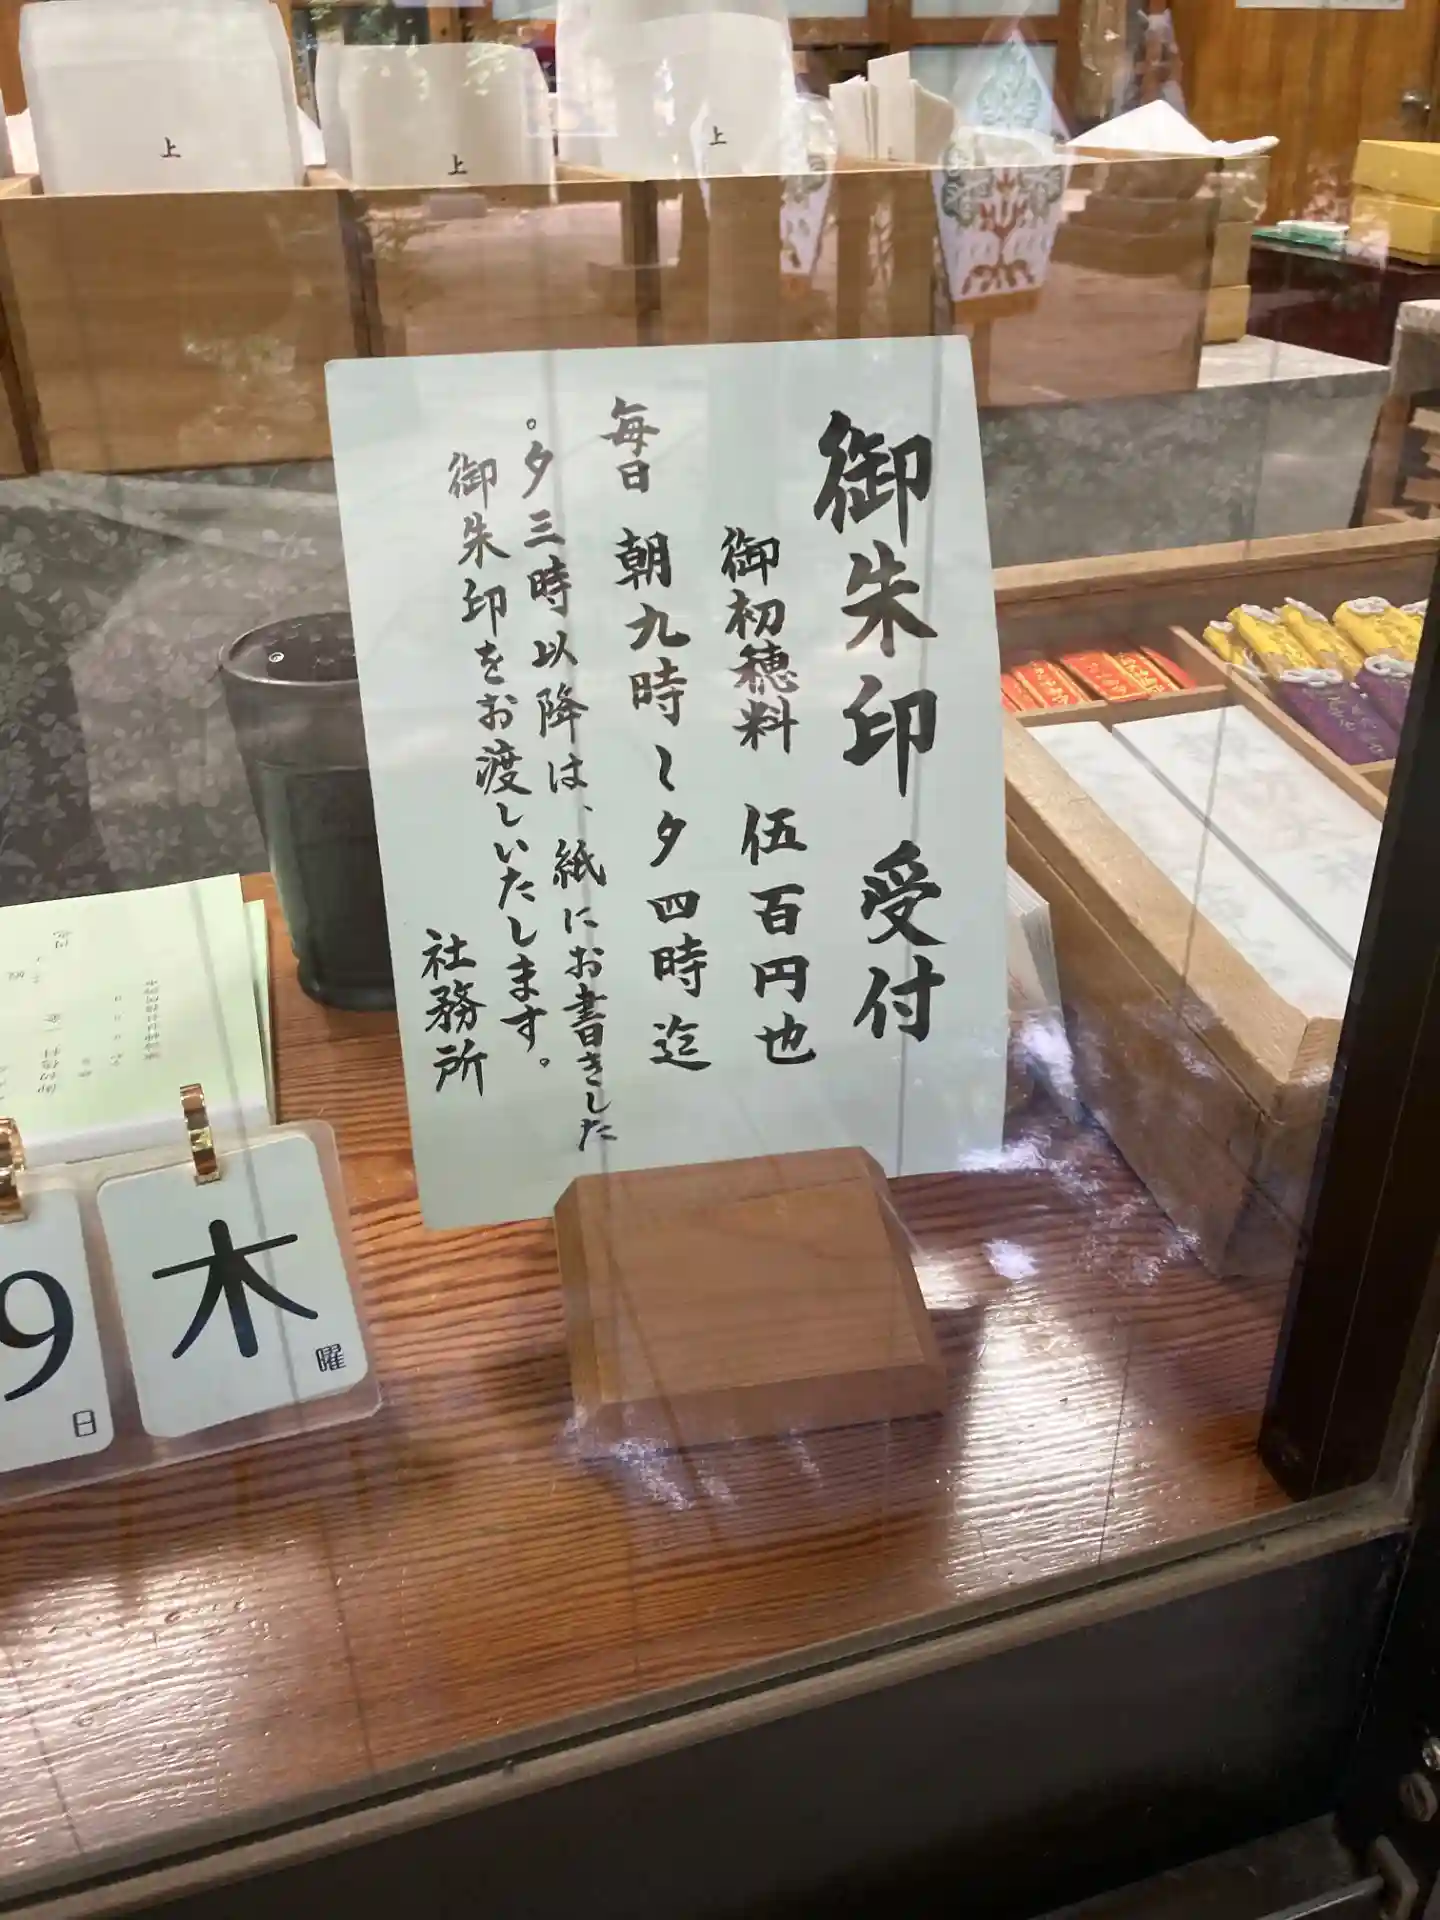 御朱印 受付
御初穂料 伍百円也
毎日 朝九時〜夕四時迄
。夕三時以降は、紙にお書きした
御朱印をお渡しいたします。
社務所
上
上
上
9
日
木
曜